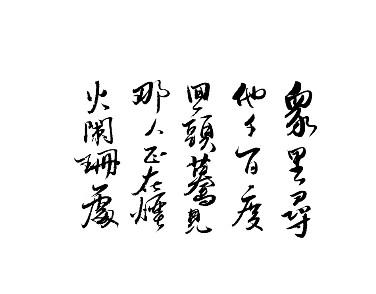 眾里尋
他千百度
回頭驀見
那人正在燈
火闌珊處